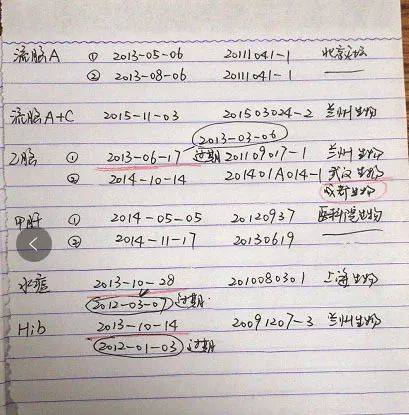 流脑A ① 2013-05-06 20111041-1 北京
② 2013-08-06 20111041-1 ——
流脑A+C 2015-11-03 201503024-2 兰州生物
2013-03-06
乙脑 ① 2013-06-17 过期 201109017-1 兰州生物
② 2014-10-14 201401A014-1 武汉生物
成都生物
甲肝 ① 2014-05-05 20120937 医科院生物
② 2014-11-17 20130619
水痘 2013-10-28 2010080301 上海生物
2012-03-07 过期
Hib 2013-10-14 20091207-3 兰州生物
2012-01-03 过期